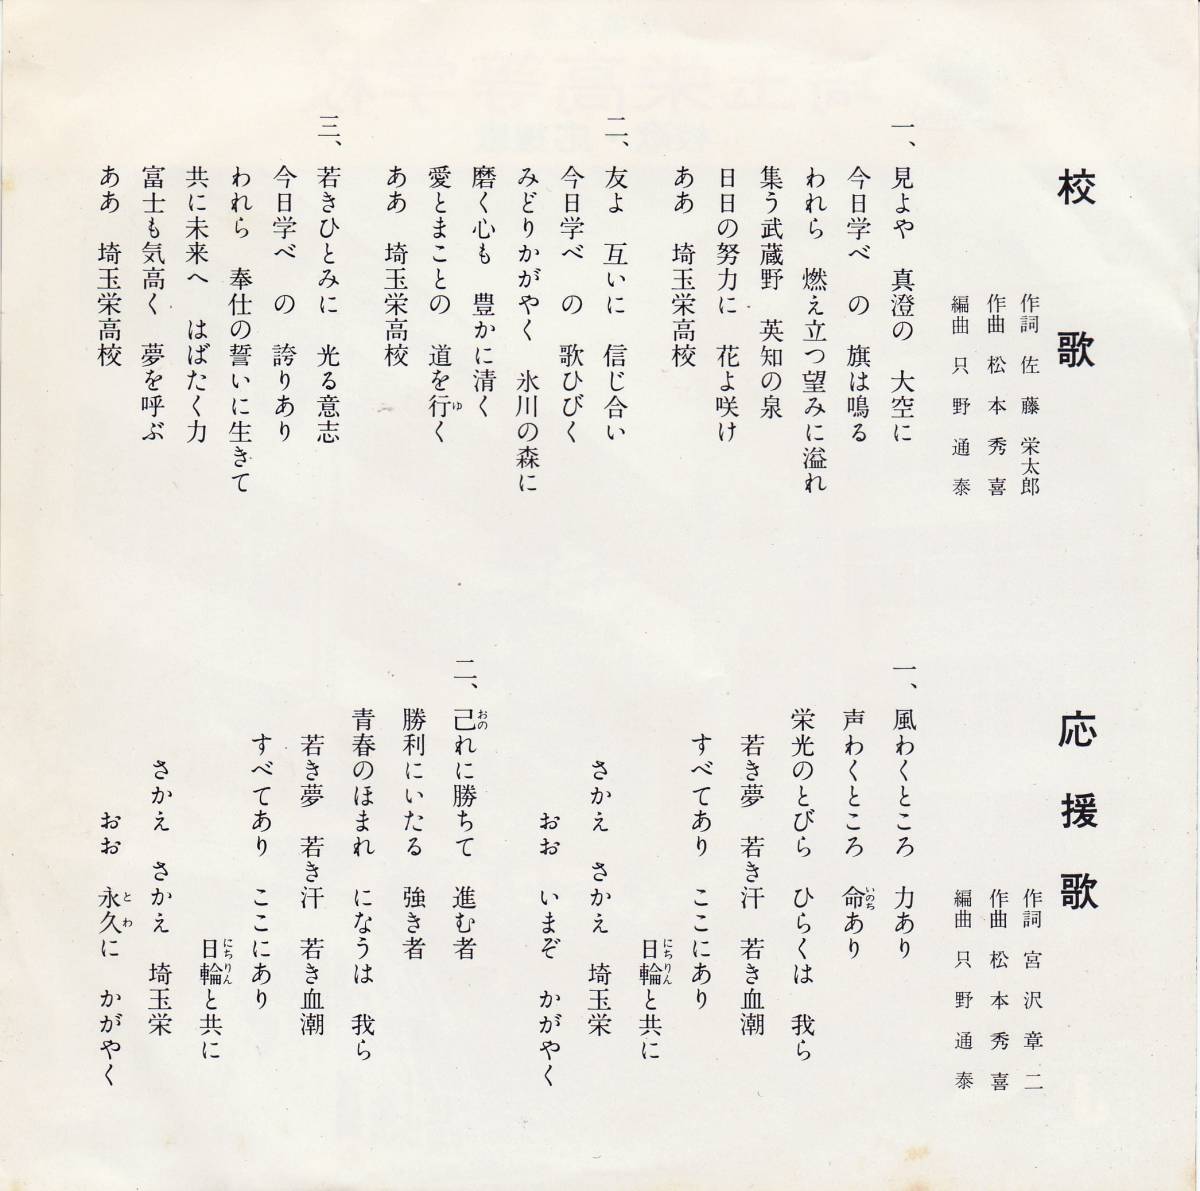 校歌
作詞 佐藤 栄太郎
作曲 松本秀喜
編曲 只野通泰
一、見よや 真澄の 大空に
今日学べ の 旗は鳴る
われら 燃え立つ望みに溢れ
集う武蔵野 英知の泉
日日の努力に 花よ咲け
ああ 埼玉栄高校
二、友よ 互いに 信じ合い
今日学べ の 歌ひびく
みどりかがやく 氷川の森に
磨く心も 豊かに清く
愛とまことの 道を行く
ゆ
ああ 埼玉栄高校
三、若きひとみに 光る意志
今日学べ の 誇りあり
われら 奉仕の誓いに生きて
共に未来へ はばたく力
富士も気高く 夢を呼ぶ
ああ 埼玉栄高校
応援歌
作詞 宮沢章二
作曲 松本秀喜
編曲 只野通泰
一、風わくところ 力あり
声わくところ 命あり
いのち
栄光のとびら ひらくは 我ら
若き夢 若き汗 若き血潮
すべてあり ここにあり
日輪と共に
にちりん
さかえ さかえ 埼玉栄
おお いまぞ かがやく
二、己れに勝ちて 進む者
おの
勝利にいたる 強き者
青春のほまれ になうは 我ら
若き夢 若き汗 若き血潮
すべてあり ここにあり
日輪と共に
にちりん
さかえ さかえ 埼玉栄
おお 永久に かがやく
とわ